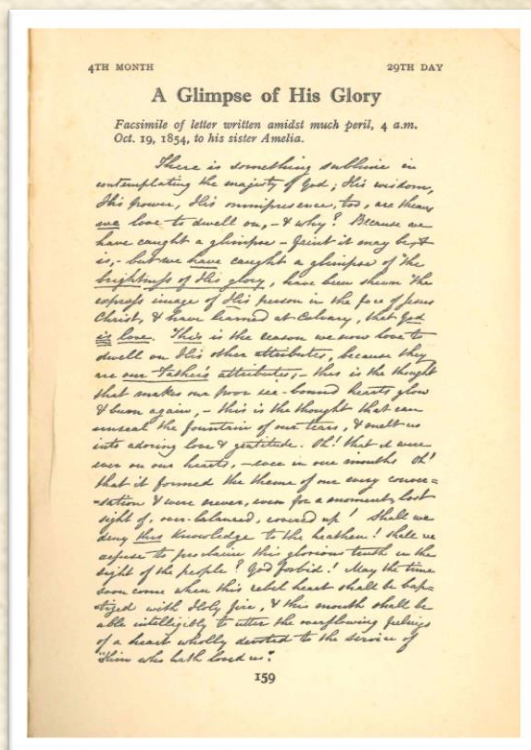 4TH MONTH 29TH DAY
A Glimpse of His Glory
Facsimile of letter written amidst much peril, 4 a.m.
Oct. 19, 1854, to his sister Amelia.
There is something sublime in
contemplating the majesty of God; His wisdom,
His power, His omnipresence, too, are themes
we love to dwell on, - & why? Because we
have caught a glimpse - faint it may be, &
is, - but we have caught a glimpse of "the
brightness of His glory, have been shewn "the
express image of His person in the face of Jesus
Christ, & have learned at Calvary, that God
is love. This is the reason we now love to
dwell on His other attributes, because they
are our Father's attributes; - this is the thought
that makes our poor ice-bound hearts glow
& burn again, - this is the thought that can
unseal the fountain of our tears, & melt us
into adoring love & gratitude. Oh! that it were
ever on our hearts, - ever in our mouths Oh!
that it formed the theme of our every conver=
=sation & were never, even for a moment, lost
sight of, over-balanced, covered up! Shall we
deny this knowledge to the heathen! Shall we
refuse to proclaim this glorious truth in the
sight of the people? God forbid! May the time
soon come when this rebel heart shall be bap=
=tized with Holy fire, & this mouth shall be
able intelligibly to utter the overflowing feelings
of a heart wholly devoted to the service of
"Him who hath loved us".
159